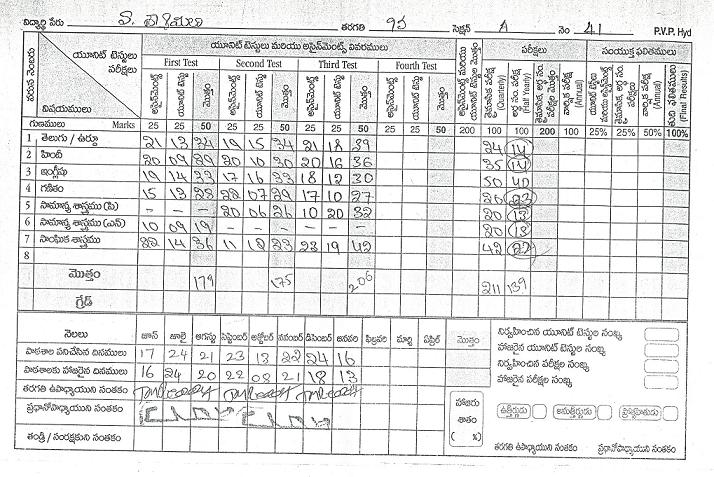 విద్యార్థి పేరు తరగతి 9వ సెక్షన్ A నెం 41 P.V.P. Hyd
వరుస నెంబరు యూనిట్ టెస్టులు పరీక్షలు విషయములు యూనిట్ టెస్టులు మరియు అసైన్‌మెంట్స్ వివరములు పరీక్షలు సంయుక్త ఫలితములు
First Test Second Test Third Test Fourth Test
అసైన్‌మెంట్స్ యూనిట్ టెస్టు మొత్తం అసైన్‌మెంట్స్ యూనిట్ టెస్టు మొత్తం అసైన్‌మెంట్స్ యూనిట్ టెస్టు మొత్తం అసైన్‌మెంట్స్ యూనిట్ టెస్టు మొత్తం (Quarterly) (Half Yearly) (Annual) (Annual) (Final Results)
గుణములు Marks 25 25 50 25 25 50 25 25 50 25 25 50 200 100 100 200 100 25% 25% 50% 100%
1 తెలుగు / ఉర్దూ 21 13 34 19 15 34 21 18 39 24 14
2 హిందీ 20 09 29 20 10 30 20 16 36 35 14
3 ఇంగ్లీషు 19 14 33 17 16 33 18 12 30 50 40
4 గణితం 15 13 28 22 07 29 17 10 27 20 23
5 సామాన్య శాస్త్రము (పి) - - - 20 06 26 10 20 32 20 13
6 సామాన్య శాస్త్రము (ఎన్) 10 09 19 - - - 20 13
7 సాంఘిక శాస్త్రము 22 14 36 11 12 23 23 19 42 42 22
8
మొత్తం 179 175 206 211 139
గ్రేడ్
నెలలు జూన్ జూలై ఆగస్టు సెప్టెంబర్ అక్టోబర్ నవంబర్ డిసెంబర్ జనవరి ఫిబ్రవరి మార్చి ఏప్రిల్ మొత్తం
పాఠశాల పనిచేసిన దినములు 17 24 21 23 13 22 24 16
పాఠశాలకు హాజరైన దినములు 16 24 20 22 08 21 18 13
తరగతి ఉపాధ్యాయుని సంతకం
ప్రధానోపాధ్యాయుని సంతకం
తండ్రి / సంరక్షకుని సంతకం
నిర్వహించిన యూనిట్ టెస్టుల సంఖ్య
హాజరైన యూనిట్ టెస్టుల సంఖ్య
నిర్వహించిన పరీక్షల సంఖ్య
హాజరైన పరీక్షల సంఖ్య
హాజరు శాతం ( % )
ఉత్తీర్ణుడు అనుత్తీర్ణుడు ప్రోత్సాహితుడు
తరగతి ఉపాధ్యాయుని సంతకం ప్రధానోపాధ్యాయుని సంతకం